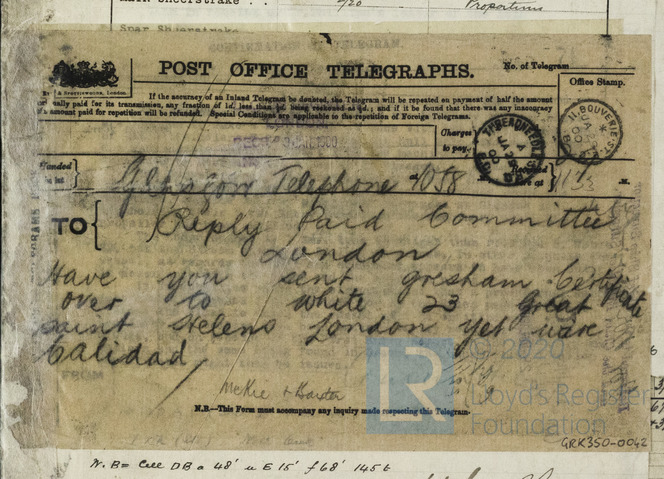 Main Sheerstrake
Proportions
Spar Sheerstrake
POST OFFICE TELEGRAPHS.
No. of Telegram
If the accuracy of an Inland Telegram be doubted, the Telegram will be repeated on payment of half the amount
paid for its transmission, any fraction of 1d. less than ½d. being reckoned as ½d.; and if it be found that there was any inaccuracy
amount paid for repetition will be refunded. Special Conditions are applicable to the repetition of Foreign Telegrams.
Office Stamp.
Charges
to pay
THREADNEEDLE
BOUVERIE ST
Handed
in at
Glasgow Telephone 1058
at
M.
TO
Reply Paid Committee
London
Have you sent gresham Certificate
over to white 23 Great
saint Helens London yet wire
Calidad
FROM
N.B.—This Form must accompany any inquiry made respecting this Telegram.
© 2020
LR
Lloyd's Register
Foundation
GRK350-0042
W.B= Cell DB a 48' u E 15' f 68' 145t